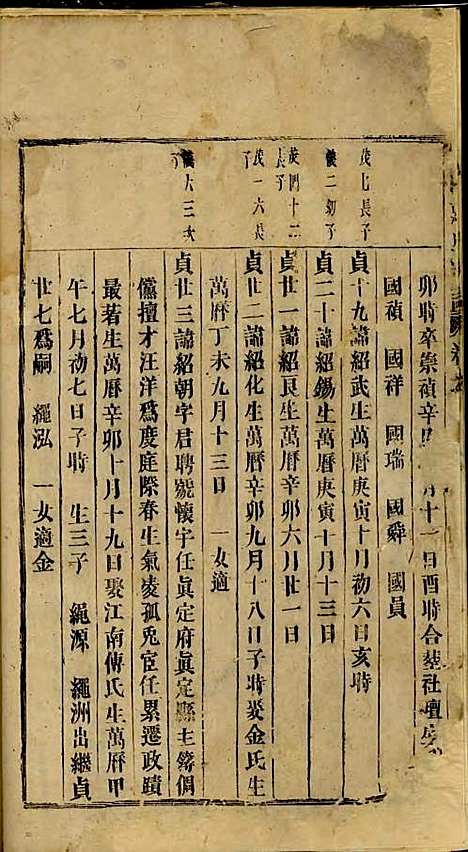 卯時卒崇禎辛 月十一日酉時合塟社壇
國禎 國祥 國瑞 國舜 國員
茂七長子
貞十九諱紹武生萬曆庚寅十月初六日亥時
二初子
貞二十諱紹錫生萬曆庚寅十月十三日
茂四十二長子
貞廿一諱紹良生萬曆辛卯六月廿一日
茂一六長子
貞廿二諱紹化生萬曆辛卯九月十八日子時娶金氏生
萬曆丁未九月十三日 一女適
六三次子
貞廿三諱紹朝字君聘寵懷字任眞定府眞定縣主簿倜
儻擅才汪洋爲度庭際春生氣凌孤兎宦任累遷政蹟
最若生萬曆辛卯十月十九日娶江南傅氏生萬曆甲
午七月初七日子時 生三子 繩源 繩洲出繼貞
廿七爲嗣 繩泓 一女適金